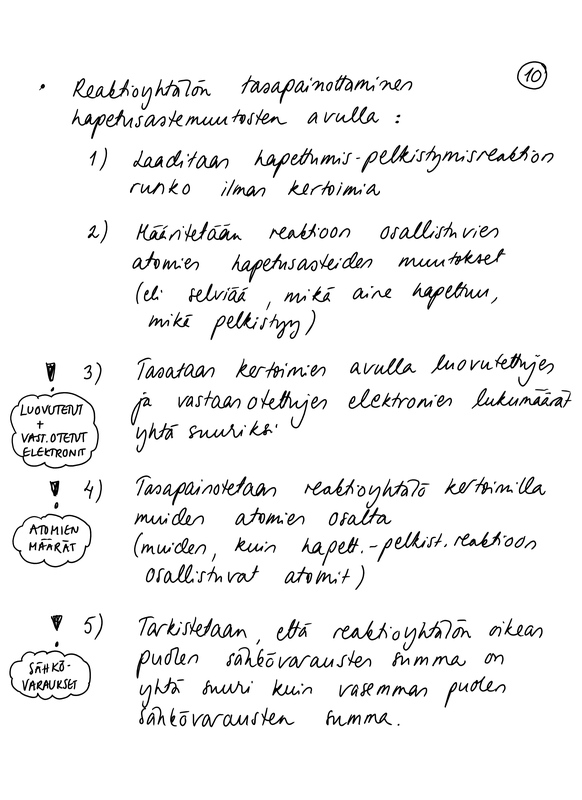 10
• Reaktioyhtälön tasapainottaminen
hapetusastemuutosten avulla :
1) Laaditaan hapettumis-pelkistymisreaktion
runko ilman kertoimia
2) Määritetään reaktioon osallistuvien
atomien hapetusasteiden muutokset
(eli selviää, mikä aine hapettuu,
mikä pelkistyy)
! 3) Tasataan kertoimien avulla luovutettujen
ja vastaanotettujen elektronien lukumäärät
yhtä suuriksi
LUOVUTETUT
+
VAST.OTETUT
ELEKTRONIT
! 4) Tasapainotetaan reaktioyhtälö kertoimilla
muiden atomien osalta
(muiden, kuin hapett.-pelkist.reaktioon
osallistuvat atomit)
ATOMIEN
MÄÄRÄT
! 5) Tarkistetaan, että reaktioyhtälön oikean
puolen sähkövarausten summa on
yhtä suuri kuin vasemman puolen
sähkövarausten summa.
SÄHKÖ-
VARAUKSET